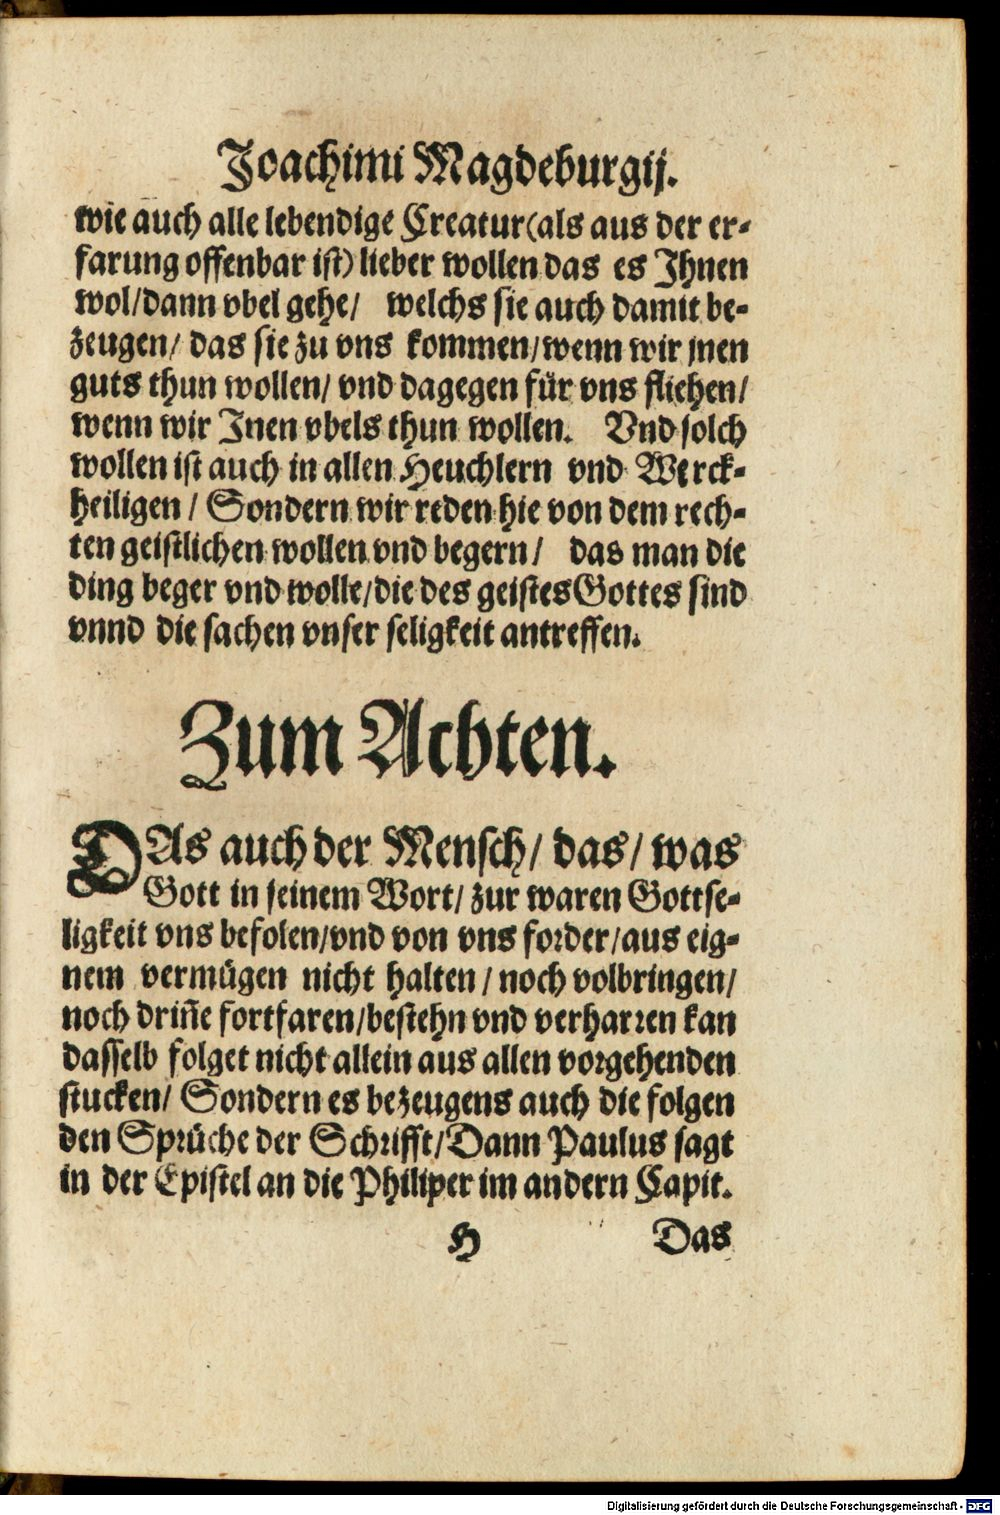 Joachimi Magdeburgij.
wie auch alle lebendige Creatur(als aus der er-
farung offenbar ist) lieber wollen das es Ihnen
wol/dann vbel gehe/ welchs sie auch damit be-
zeugen/ das sie zu vns kommen/wenn wir jnen
guts thun wollen/ vnd dagegen für vns fliehen/
wenn wir Inen vbels thun wollen. Vnd solch
wollen ist auch in allen Heuchlern vnd Werck-
heiligen/ Sondern wir reden hie von dem rech-
ten geistlichen wollen vnd begern/ das man die
ding beger vnd wolle/die des geistes Gottes sind
vnnd die sachen vnser seligkeit antreffen.
Zum Achten.
DAs auch der Mensch/ das/ was
Gott in seinem Wort/ zur waren Gottse-
ligkeit vns befolen/vnd von vns forder/aus eig-
nem vermügen nicht halten/ noch volbringen/
noch driñe fortfaren/bestehn vnd verharren kan
dasselb folget nicht allein aus allen vorgehenden
stucken/ Sondern es bezeugens auch die folgen
den Sprüche der Schrifft/Dann Paulus sagt
in der Epistel an die Philiper im andern Capit.
H Das
Digitalisierung gefördert durch die Deutsche Forschungsgemeinschaft - DFG